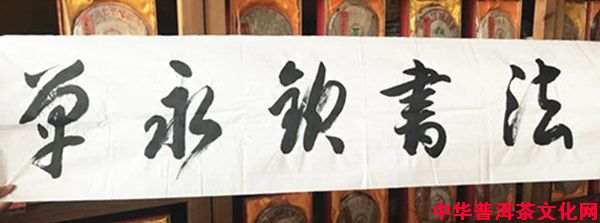 单永钦书法
中华普洱茶文化网